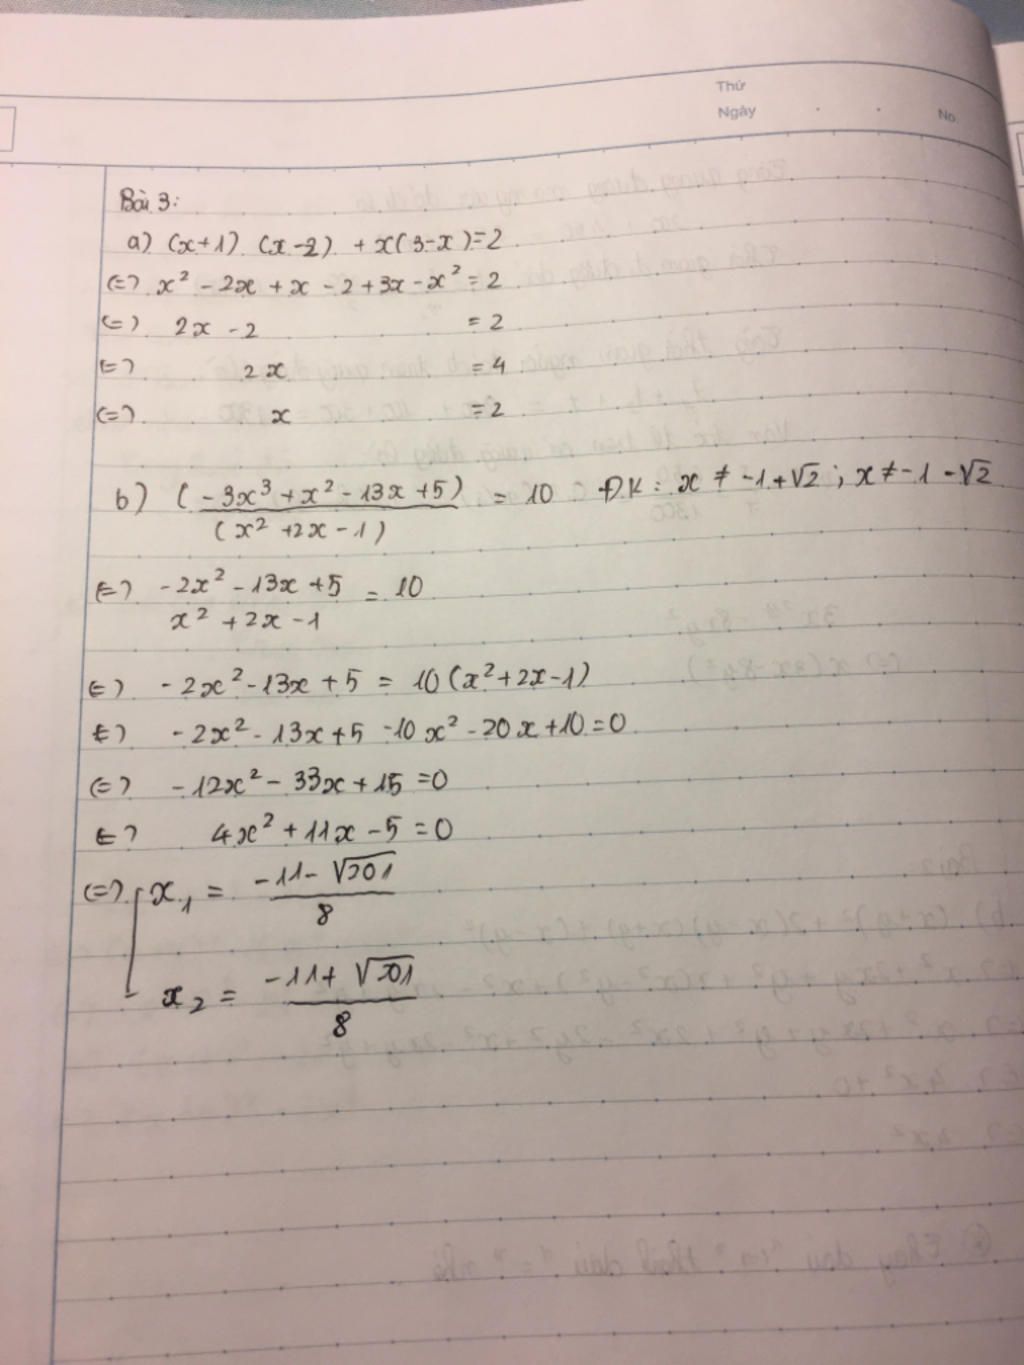 Thứ
Ngày
No.
Bài 3:
a) (x+1) (x-2) + x(3-x)=2
(=) x² - 2x + x - 2 + 3x - x² = 2
(=) 2x - 2 = 2
(=) 2x = 4
(=) x = 2
b) (-3x³ + x² - 13x + 5) / (x² + 2x - 1) = 10 ĐK: x ≠ -1+√2 ; x ≠ -1 - √2
(=) -2x² - 13x + 5 / x² + 2x - 1 = 10
(=) -2x² - 13x + 5 = 10(x² + 2x - 1)
(=) -2x² - 13x + 5 - 10x² - 20x + 10 = 0
(=) -12x² - 33x + 15 = 0
(=) 4x² + 11x - 5 = 0
(=) x₁ = -11 - √201 / 8
x₂ = -11 + √201 / 8